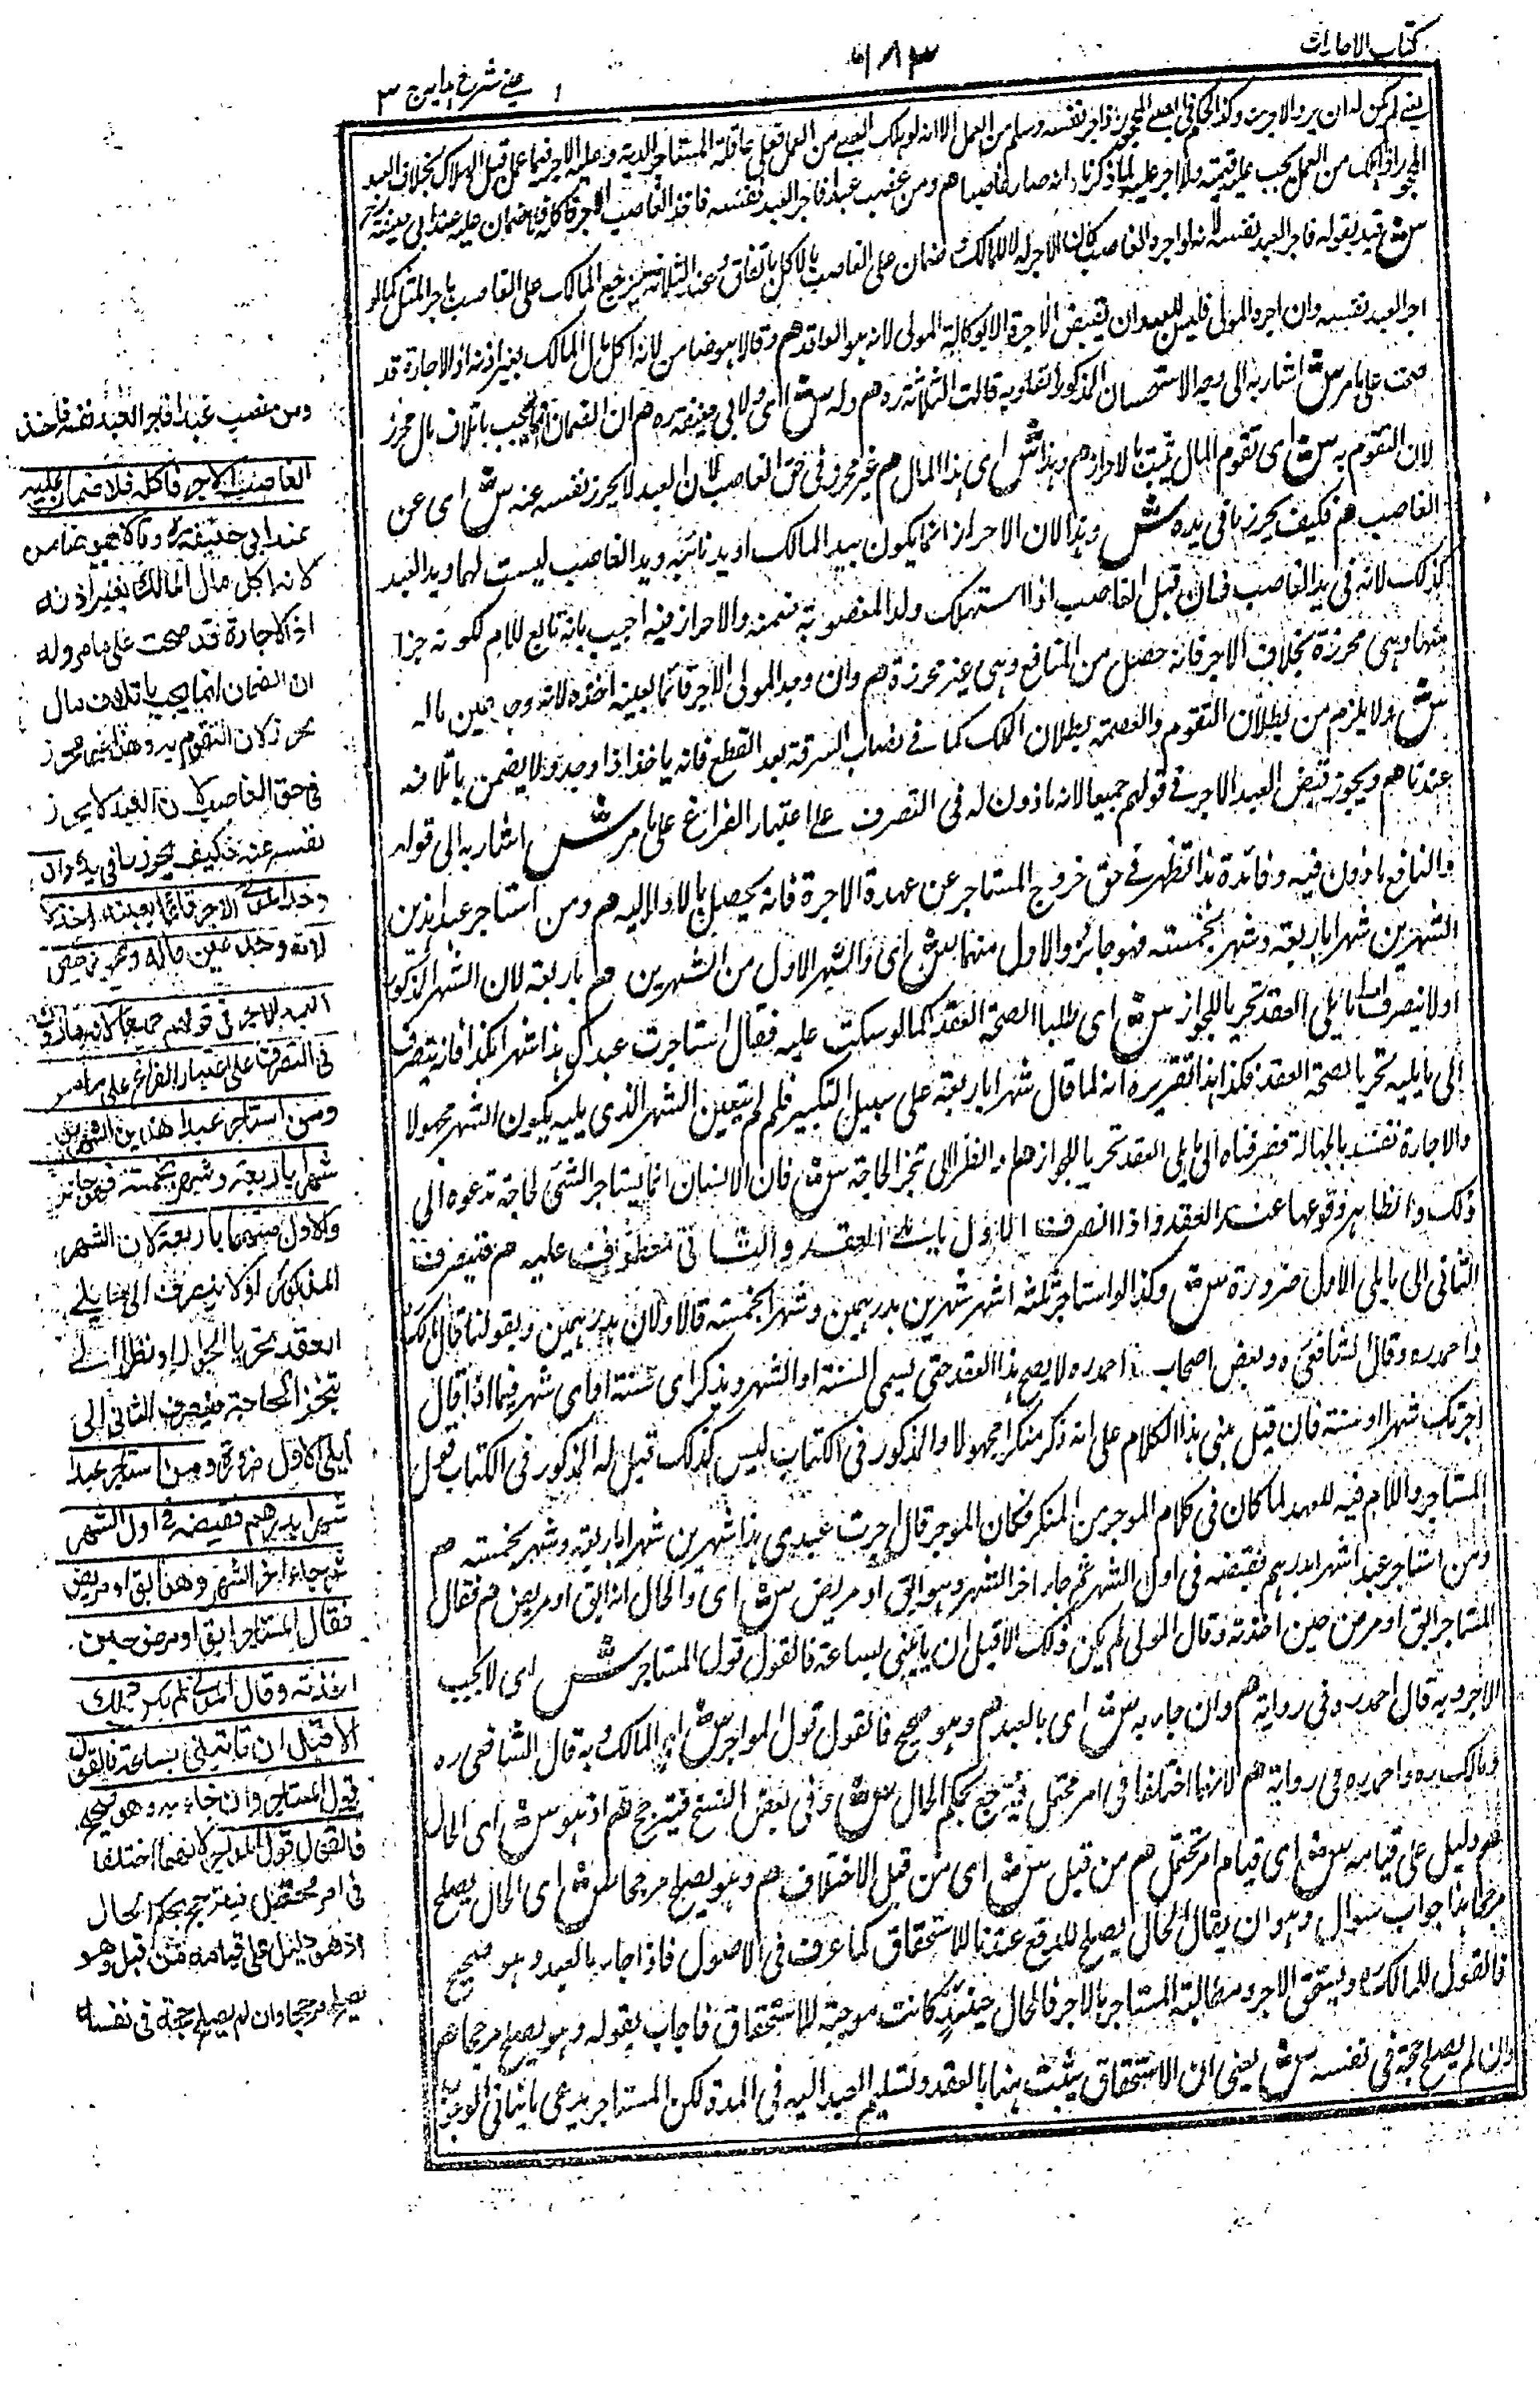 كتاب الاجارات
٩٨٣
عينى شرح هدايه ج ٣
يعنى لم يكن له ان يرد الاجرة وكذا الحكم فى الصبى المحجور اذا آجر نفسه وسلم من العمل الا انه لو هلك الصبى من العمل فعلى عاقلة المستاجر الدية وعليه الاجر فيما عمل قبل الهلاك بخلاف العبد
المحجور اذا هلك من العمل يجب عليه قيمته ولا اجر عليه لما ذكرنا انه صار غاصبا هم ومن غصب عبدا فاجر العبد نفسه فاخذ الغاصب الاجرة فاكله فلا ضمان عليه عند ابى حنيفة ره
ش قيد بقوله فاجر العبد نفسه لانه لو اجره الغاصب كان الاجر له لا للمالك ضمان على الغاصب بالاكل باتفاق وعند الثلاثة يرجع المالك على الغاصب باجر المثل كما لو
اجر العبد نفسه وان اجره المولى فليس للعبد ان يقبض الاجرة الا بوكالة المولى لانه هو العاقد هم وقالا هو ضامن لانه اكل مال المالك بغير اذنه اذ الاجارة قد
صحت على ما مر ش اشار به الى وجه الاستحسان المذكور انفا وبه قالت الثلاثة ره هم وله ش اى ولابى حنيفة ره هم ان الضمان انما يجب باتلاف مال محرز
لان التقوم به ش اى تقوم المال يثبت بالاحراز هم وهذا ش اى هذا المال هم غير محرز فى حق الغاصب لان العبد لا يحرز نفسه عنه ش اى عن
الغاصب هم فكيف يحرز ما فى يده ش وهذا لان الاحراز انما يكون بيد المالك او يد نائبه ويد الغاصب ليست لهما ويد العبد
كذلك لانه فى يد الغاصب فان قيل الغاصب اذا استهلك ولد المغصوبة ضمنه والاحراز فيه اجيب بانه تابع للام لكونه جزأ
منها وهى محرزة بخلاف الاجر فانه حصل من المنافع وهى غير محرزة هم وان وجد المولى الاجر قائما بعينه اخذه لانه وجد عين ماله
ش ولا يلزم من بطلان التقوم والعصمة بطلان الملك كما فى نصاب السرقة بعد القطع فانه ياخذ اذا وجد ولا يضمن باتلافه
عندنا هم ويجوز قبض العبد الاجر فى قولهم جميعا لانه ماذون له فى التصرف على اعتبار الفراغ على ما مر ش اشار به الى قوله
والنافع ماذون فيه وفائدة هذا تظهر فى حق خروج المستاجر عن عهدة الاجرة فانه يحصل بالاداء اليه هم ومن استاجر عبدا هذين
الشهرين شهرا باربعة وشهرا بخمسة فهو جائز والاول منهما ش اى والشهر الاول من الشهرين هم باربعة لان الشهر المذكور
اولا ينصرف الى ما يلى العقد تحريا للجواز ش اى طلبا لصحة العقد كما لو سكت عليه فقال استاجرت عبدك هذا شهرا بكذا فانه يتصرف
الى ما يليه تحريا لصحة العقد فكذا هذا تقريره انه لما قال شهرا باربعة على سبيل التنكير فلو لم يتعين الشهر الذى يليه يكون الشهر مجهولا
والاجارة تفسد بالجهالة فصرفناه الى ما يلى العقد تحريا للجواز هم او نظرا الى تنجز الحاجة ش فان الانسان انما يستاجر الشئ لحاجة تدعوه الى
ذلك والظاهر وقوعها عند العقد واذا انصرف الاول الى ما يلى العقد والثانى معطوف عليه هم فينصرف
الثانى الى ما يلى الاول ضرورة ش وكذا لو استاجر ثلثه اشهر شهرين بدرهمين وشهرا بخمسة فالاولان بدرهمين وبقولنا قال مالك
واحمد ره وقال الشافعى ره وبعض اصحاب احمد ره لا يصح هذا العقد حتى يسمى السنة او الشهر ويذكر اى سنة او اى شهر فيما اذا قال
اجرتك شهرا او سنة فان قيل بنى هذا الكلام على انه ذكر منكرا مجهولا والمذكور فى الكتاب ليس كذلك قيل له المذكور فى الكتاب قول
المستاجر واللام فيه للعهد لما كان فى كلام الموجر من المنكر فكان الموجر قال اجرت عبدى هذا شهرين شهرا باربعة وشهرا بخمسة هم
ومن استاجر عبدا شهرا بدرهم فقبضه فى اول الشهر ثم جاء اخر الشهر وهو آبق او مريض ش اى والحال انه ابق او مريض هم فقال
المستاجر ابق او مرض حين اخذته وقال المولى لم يكن ذلك الا قبل ان ياتينى بساعة فالقول قول المستاجر ش اى لا يجب
الاجر وبه قال احمد ره فى رواية هم وان جاء به ش اى بالعبد هم وهو صحيح فالقول قول المواجر ش اى المالك وبه قال الشافعى ره
ومالك ره واحمد ره فى رواية هم لانهما اختلفا فى امر محتمل فيترجح بحكم الحال ش وفى بعض النسخ فيترجح هم اذ هو ش اى الحال
هم دليل على قيامه ش اى قيام امر محتمل هم من قبل ش اى من قبل الاختلاف هم وهو يصلح مرجحا ش اى الحال يصلح
مرجحا هذا جواب سوال وهو ان يقال الحال يصلح للدفع عندنا لا للاستحقاق كما عرف فى الاصول فاذا جاء بالعبد وهو صحيح
فالقول للمالك ويستحق الاجر ومطالبة المستاجر بالاجر فالحال حينئذ كانت موجبة للاستحقاق فاجاب بقوله وهو يصلح مرجحا هم
وان لم يصلح حجة فى نفسه ش يعنى ان الاستحقاق يثبت هنا بالعقد وتسليم العبد اليه فى المدة لكن المستاجر يدعى ما ينافى الوجوب
ومن غصب عبدا فاجر العبد نفسه فاخذ
الغاصب الاجر فاكله فلا ضمان عليه
عند ابي حنيفة ره وقالا هو ضامن
لانه اكل مال المالك بغير اذنه
اذ الاجارة قد صحت على ما مر وله
ان الضمان انما يجب باتلاف مال
محرز لان التقوم به وهذا غير محرز
فى حق الغاصب لان العبد لا يحرز
نفسه عنه فكيف يحرز ما فى يده وان
وجد المولى الاجر قائما بعينه اخذه
لانه وجد عين ماله ويجوز قبض
العبد الاجر فى قولهم جميعا لانه ماذون
فى التصرف على اعتبار الفراغ على ما مر
ومن استاجر عبدا هذين الشهرين
شهرا باربعة وشهرا بخمسة فهو جائز
والاول منهما باربعة لان الشهر
المذكور اولا ينصرف الى ما يلى
العقد تحريا للجواز او نظرا الى
تنجز الحاجة فينصرف الثانى الى
ما يلى الاول ضرورة ومن استاجر عبدا
شهرا بدرهم فقبضه فى اول الشهر
ثم جاء اخر الشهر وهو ابق او مريض
فقال المستاجر ابق او مرض حين
اخذته وقال المولى لم يكن ذلك
الا قبل ان تاتينى بساعة فالقول
قول المستاجر وان جاء به وهو صحيح
فالقول قول المواجر لانهما اختلفا
فى امر محتمل فيترجح بحكم الحال
اذ هو دليل على قيامه من قبل وهو
يصلح مرجحا وان لم يصلح حجة فى نفسه